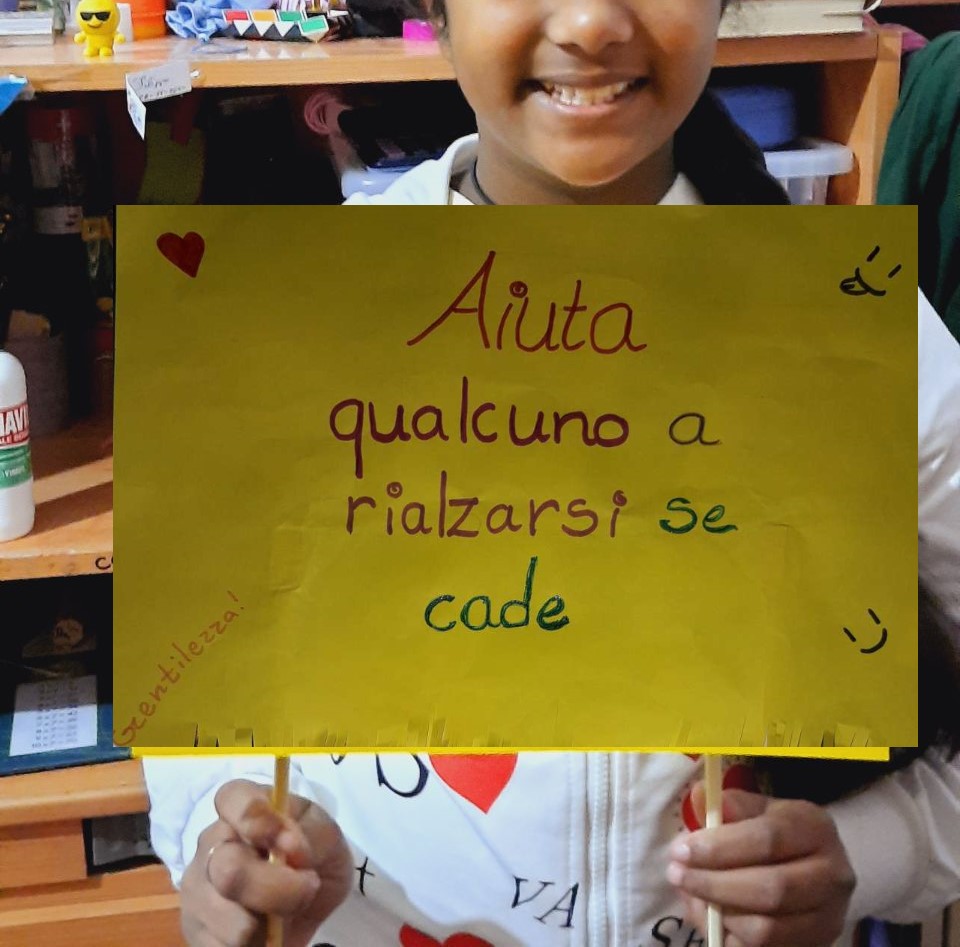 Aiuta
qualcuno a
rialzarsi se
cade
Gentilezza!
VA